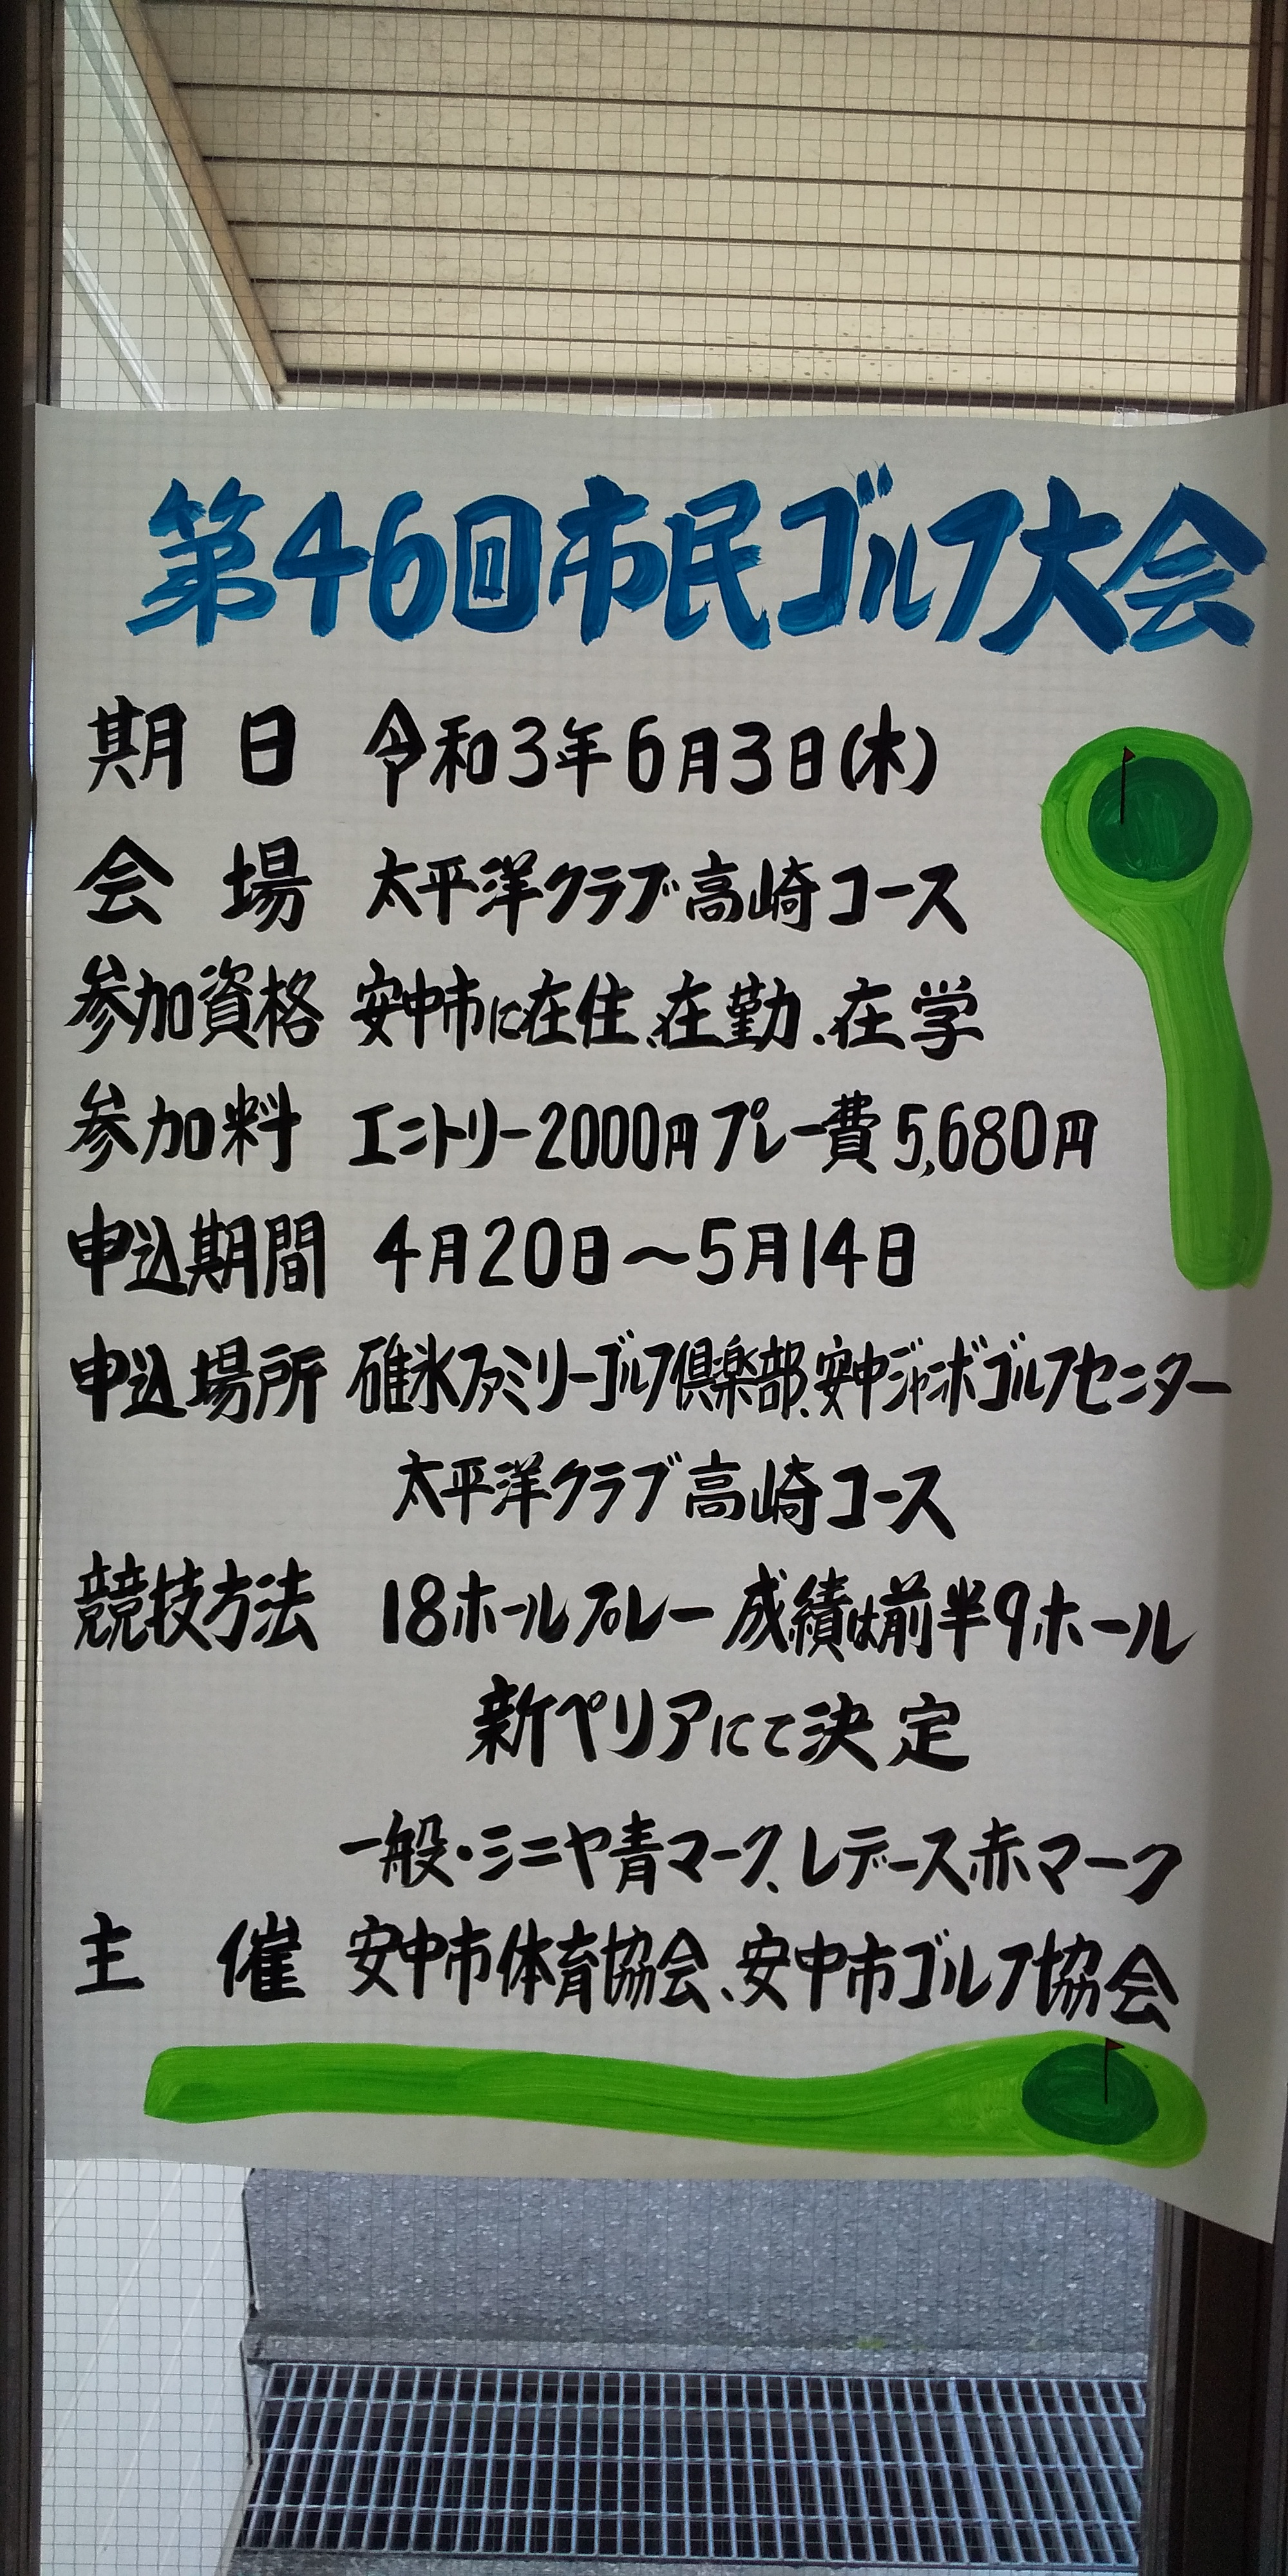 第46回市民ゴルフ大会
期日 令和3年6月3日(木)
会場 太平洋クラブ高崎コース
参加資格 安中市に在住、在勤、在学
参加料 エントリー2000円プレー費5,680円
申込期間 4月20日〜5月14日
申込場所 碓氷ファミリーゴルフ倶楽部、安中ジャンボゴルフセンター
太平洋クラブ高崎コース
競技方法 18ホールプレー 成績は前半9ホール
新ペリアにて決定
一般・シニヤ青マーク、レデース赤マーク
主催 安中市体育協会、安中市ゴルフ協会